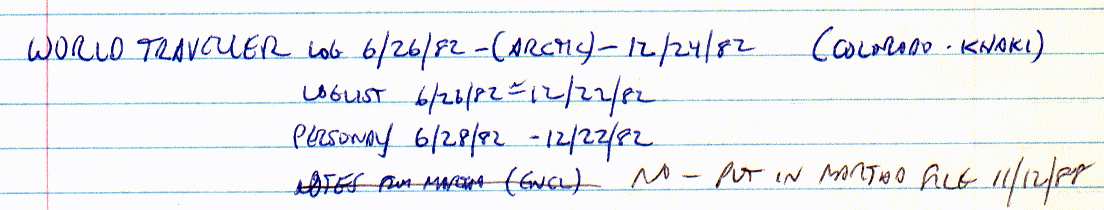 WORLD TRAVELLER LOG 6/26/82 - (ARCTIC) - 12/24/82 (COLORADO · KHAKI)
LOGLIST 6/26/82 = 12/22/82
PERSONAL 6/28/82 - 12/22/82
NOTES FROM MARTHA (ENCL) NO - PUT IN MARTHA FILE 11/12/88